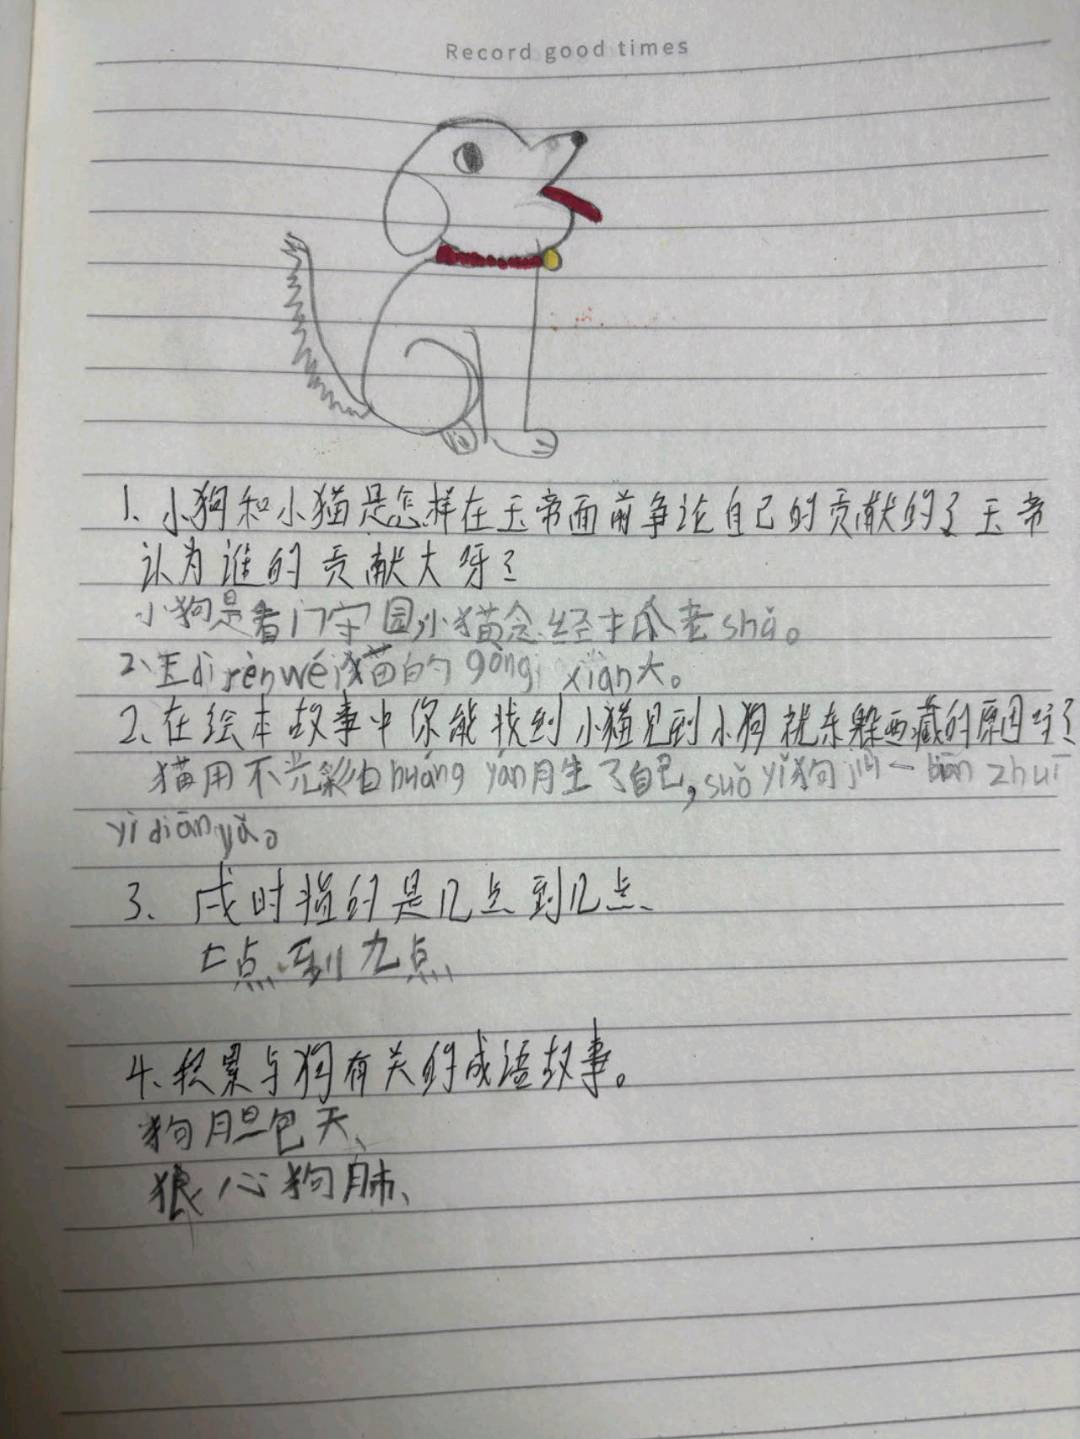 Record good times
1、小狗和小猫是怎样在玉帝面前争论自己的贡献的？玉帝
认为谁的贡献大呀？
小狗是看门守园，小猫念经手爪老shǔ。
2、王dì rèn wéi猫的gòng xiàn大。
2、在绘本故事中你能找到小猫见到小狗就东躲西藏的原因吗？
猫用不光彩白huǎng yán月生了自己，suǒ yǐ狗jiù一biān zhuī
yì diān yǎo。
3、戌时指的是几点到几点、
七点到九点
4、积累与狗有关的成语故事。
狗胆包天、
狼心狗肺、